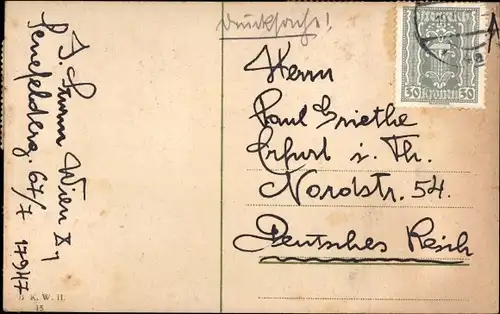 Drucksache!
Herrn
Paul Griethe
Erfurt i. Th.
Nordstr. 54.
Deutsches Reich
J. Sturm Wien X/1
Senefelderg. 67/7
17947
B. K. W. II.
15
30 30